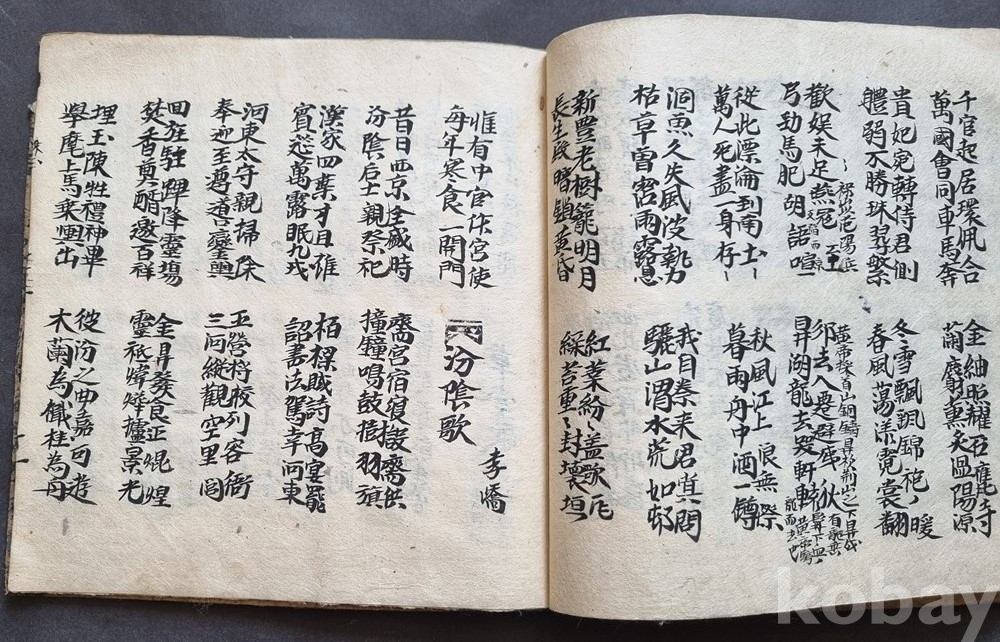 千官起居環佩合
萬國會同車馬奔
金紬昭耀石瓮寺
蘭麝熏炙温陽源
貴妃宛轉侍君側
軆弱不勝珠翠繁
冬雪飄颻錦袍暖
春風蕩漾霓裳翻
歡娛未足燕寇至
弓劲馬肥胡語喧
邠去人迁避戎狄
鼎湖龍去哭軒轅
從此漂淪到南土
萬人死盡一身存
秋風江上浪無際
暮雨舟中酒一樽
涸魚久失風波勢
枯草曾霑雨露恩
我自秦来君莫問
驪山渭水荒如邨
新豊老樹籠明月
長生殿暗鎖黄昏
紅葉紛紛盖欹瓦
綠苔重重封壞垣
惟有中官作宮使
每年寒食一開門
汾陰歌
李嶠
昔日西京全盛時
汾陰后土親祭祀
齋宮宿寢設齋供
撞鐘鳴鼓樹羽旗
漢家四葉才且雄
賓延萬靈服九戎
栢樑賦詩高宴罷
詔書法駕幸河東
河東太守親掃除
奉迎至尊道鑾輿
五營將校列容衛
三河縱觀空里閭
回旌駐蹕降靈場
焚香奠醑邀百祥
金鼎發食正焜煌
靈祇煒燁攄景光
埋玉陳牲禮神畢
擧麾上馬乘輿出
彼汾之曲嘉可遊
木蘭為檝桂為舟
kobay